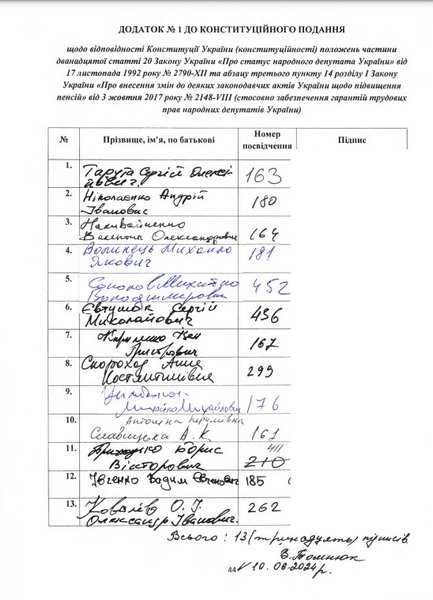 ДОДАТОК № 1 ДО КОНСТИТУЦІЙНОГО ПОДАННЯ
щодо відповідності Конституції України (конституційності) положень частини
дванадцятої статті 20 Закону України «Про статус народного депутата України» від
17 листопада 1992 року № 2790-XII та абзацу третього пункту 14 розділу I Закону
України «Про внесення змін до деяких законодавчих актів України щодо підвищення
пенсій» від 3 жовтня 2017 року № 2148-VIII (стосовно забезпечення гарантій трудових
прав народних депутатів України)
№ Прізвище, ім'я, по батькові Номер посвідчення Підпис
1. Тарута Сергій Олексі-
йович. 163
2. Ніколаєнко Андрій
Іванович 180
3. Наливайченко
Валентин Олександрович 164
4. Волинець Михайло
Якович 181
5. Соколов Михайло
Володимирович 452
6. Євтушок Сергій
Миколайович 436
7. Кириленко Іван
Григорович 167
8. Скороход Анна
Костянтинівна 299
9. Цимбалюк
Михайло Михайлович 176
10. Антоніна Керимівна
Славицька А. К 161
11. Приходько Борис
Вікторович 411
210
12. Івченко Вадим Євгенович 185
13. Ковальов О. І.
Олександр Іванович. 262
Всього: 13 (тринадцять) підписів
10.06.2024 р.